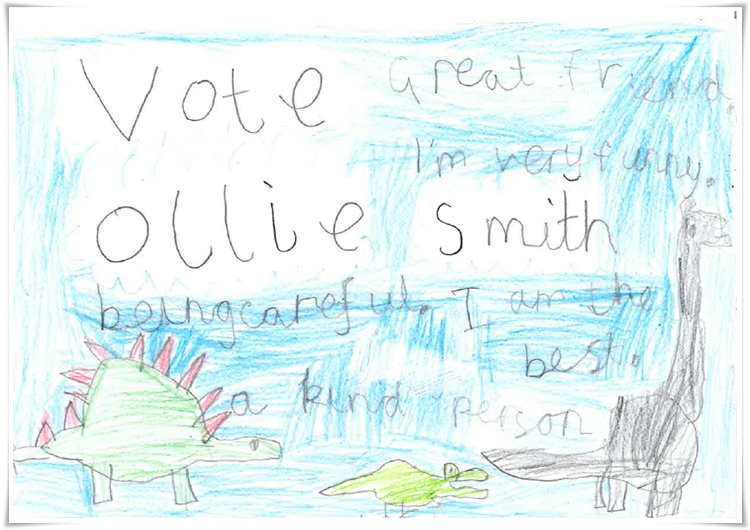 Vote
Great friend.
I'm very funny.
Ollie Smith
being careful. I am the
best.
a kind person